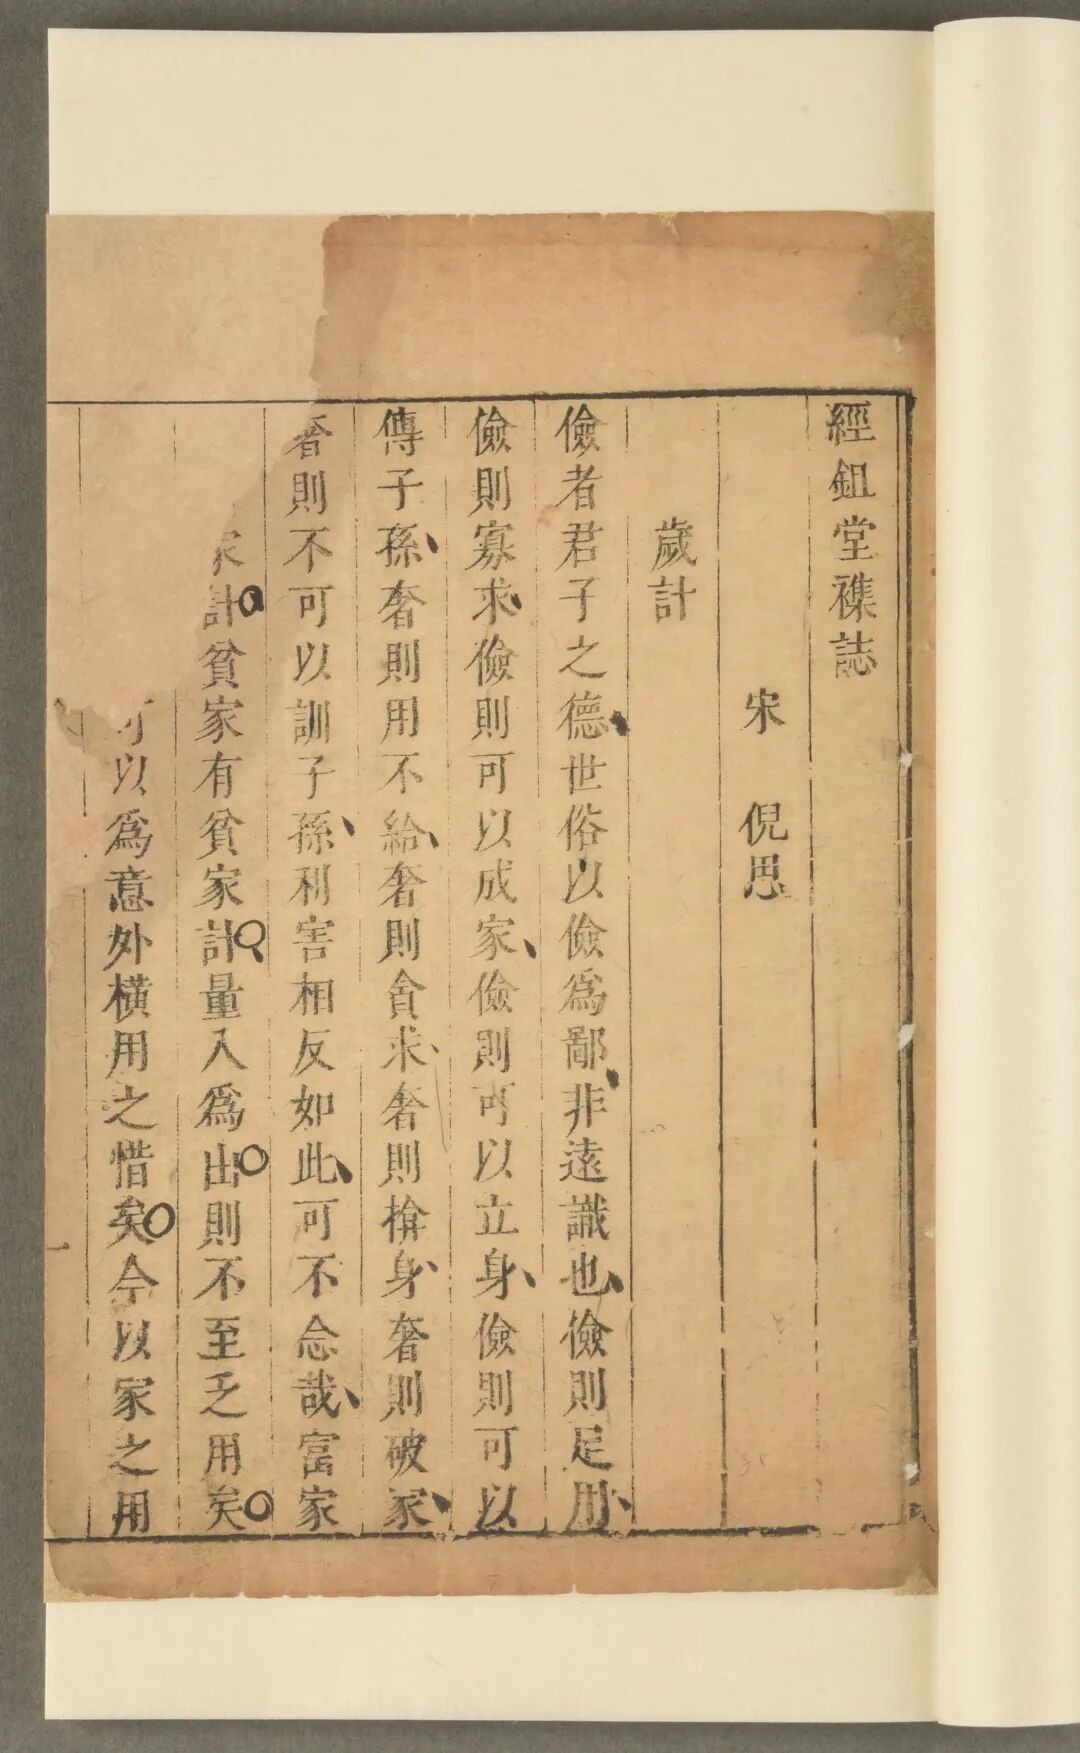 經鉏堂襍誌
宋 倪思
歲計
儉者君子之德世俗以儉為鄙非遠識也儉則足用
儉則寡求儉則可以成家儉則可以立身儉則可以
傳子孫奢則用不給奢則貪求奢則揜身奢則破家
奢則不可以訓子孫利害相反如此可不念哉富家
家計貧家有貧家計量入爲出則不至乏用矣
可以爲意外橫用之惜矣今以家之用
一